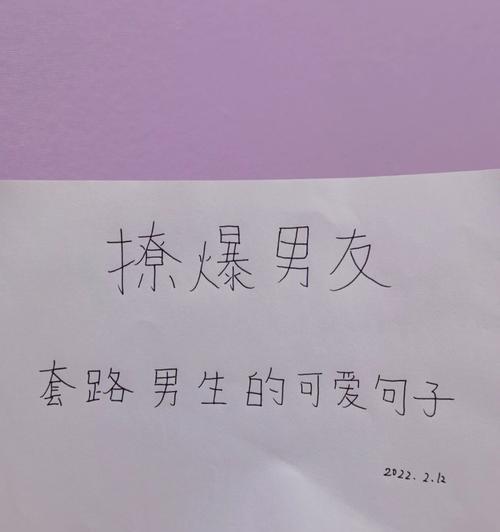 撩爆男友
套路男生的可爱句子
2022.2.12